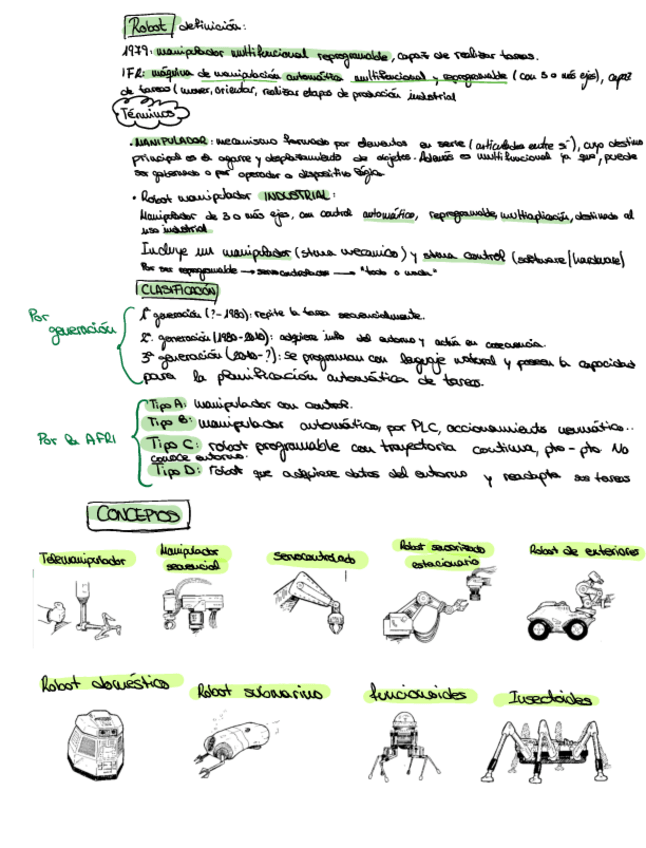 Robot / definición:
1979: manipulador multifuncional reprogramable, capaz de realizar tareas.
IFR: máquina de manipulación automática multifuncional y reprogramable (con 3 o más ejes), capaz
de tareas (mover, orientar, realizar etapas de producción industrial
Términos
• MANIPULADOR: mecanismo formado por elementos en serie (articulados entre sí), cuyo destino
principal es el agarre y desplazamiento de objetos. Además es multifuncional ya que, puede
ser gobernado o por operador o dispositivo lógico.
• Robot manipulador INDUSTRIAL:
Manipulador de 3 o más ejes, con control automático, reprogramable, multiaplicación, destinado al
uso industrial
Incluye un manipulador (stma mecánico) y stma control (software/hardware)
Por ser reprogramable → servocontrolador → "todo o nada"
CLASIFICACIÓN
Por
generación
1ª generación (?-1980): repite la tarea secuencialmente.
2ª generación (1980-2010): adquiere info del entorno y actúa en consecuencia.
3ª generación (2010-?): se programan con lenguaje natural y poseen la capacidad
para la planificación automática de tareas.
Por la AFRI
Tipo A: manipulador con control.
Tipo B: manipulador automático, por PLC, accionamiento neumático..
Tipo C: robot programable con trayectoria continua, pto-pto No
conoce entorno.
Tipo D: robot que adquiere datos del entorno y readapta sus tareas
CONCEPTOS
Telemanipulador
Manipulador
secuencial
servocontrolado
Robot sensorizado
estacionario
Robot de exteriores
Robot doméstico
Robot submarino
funcionoides
Insectoides